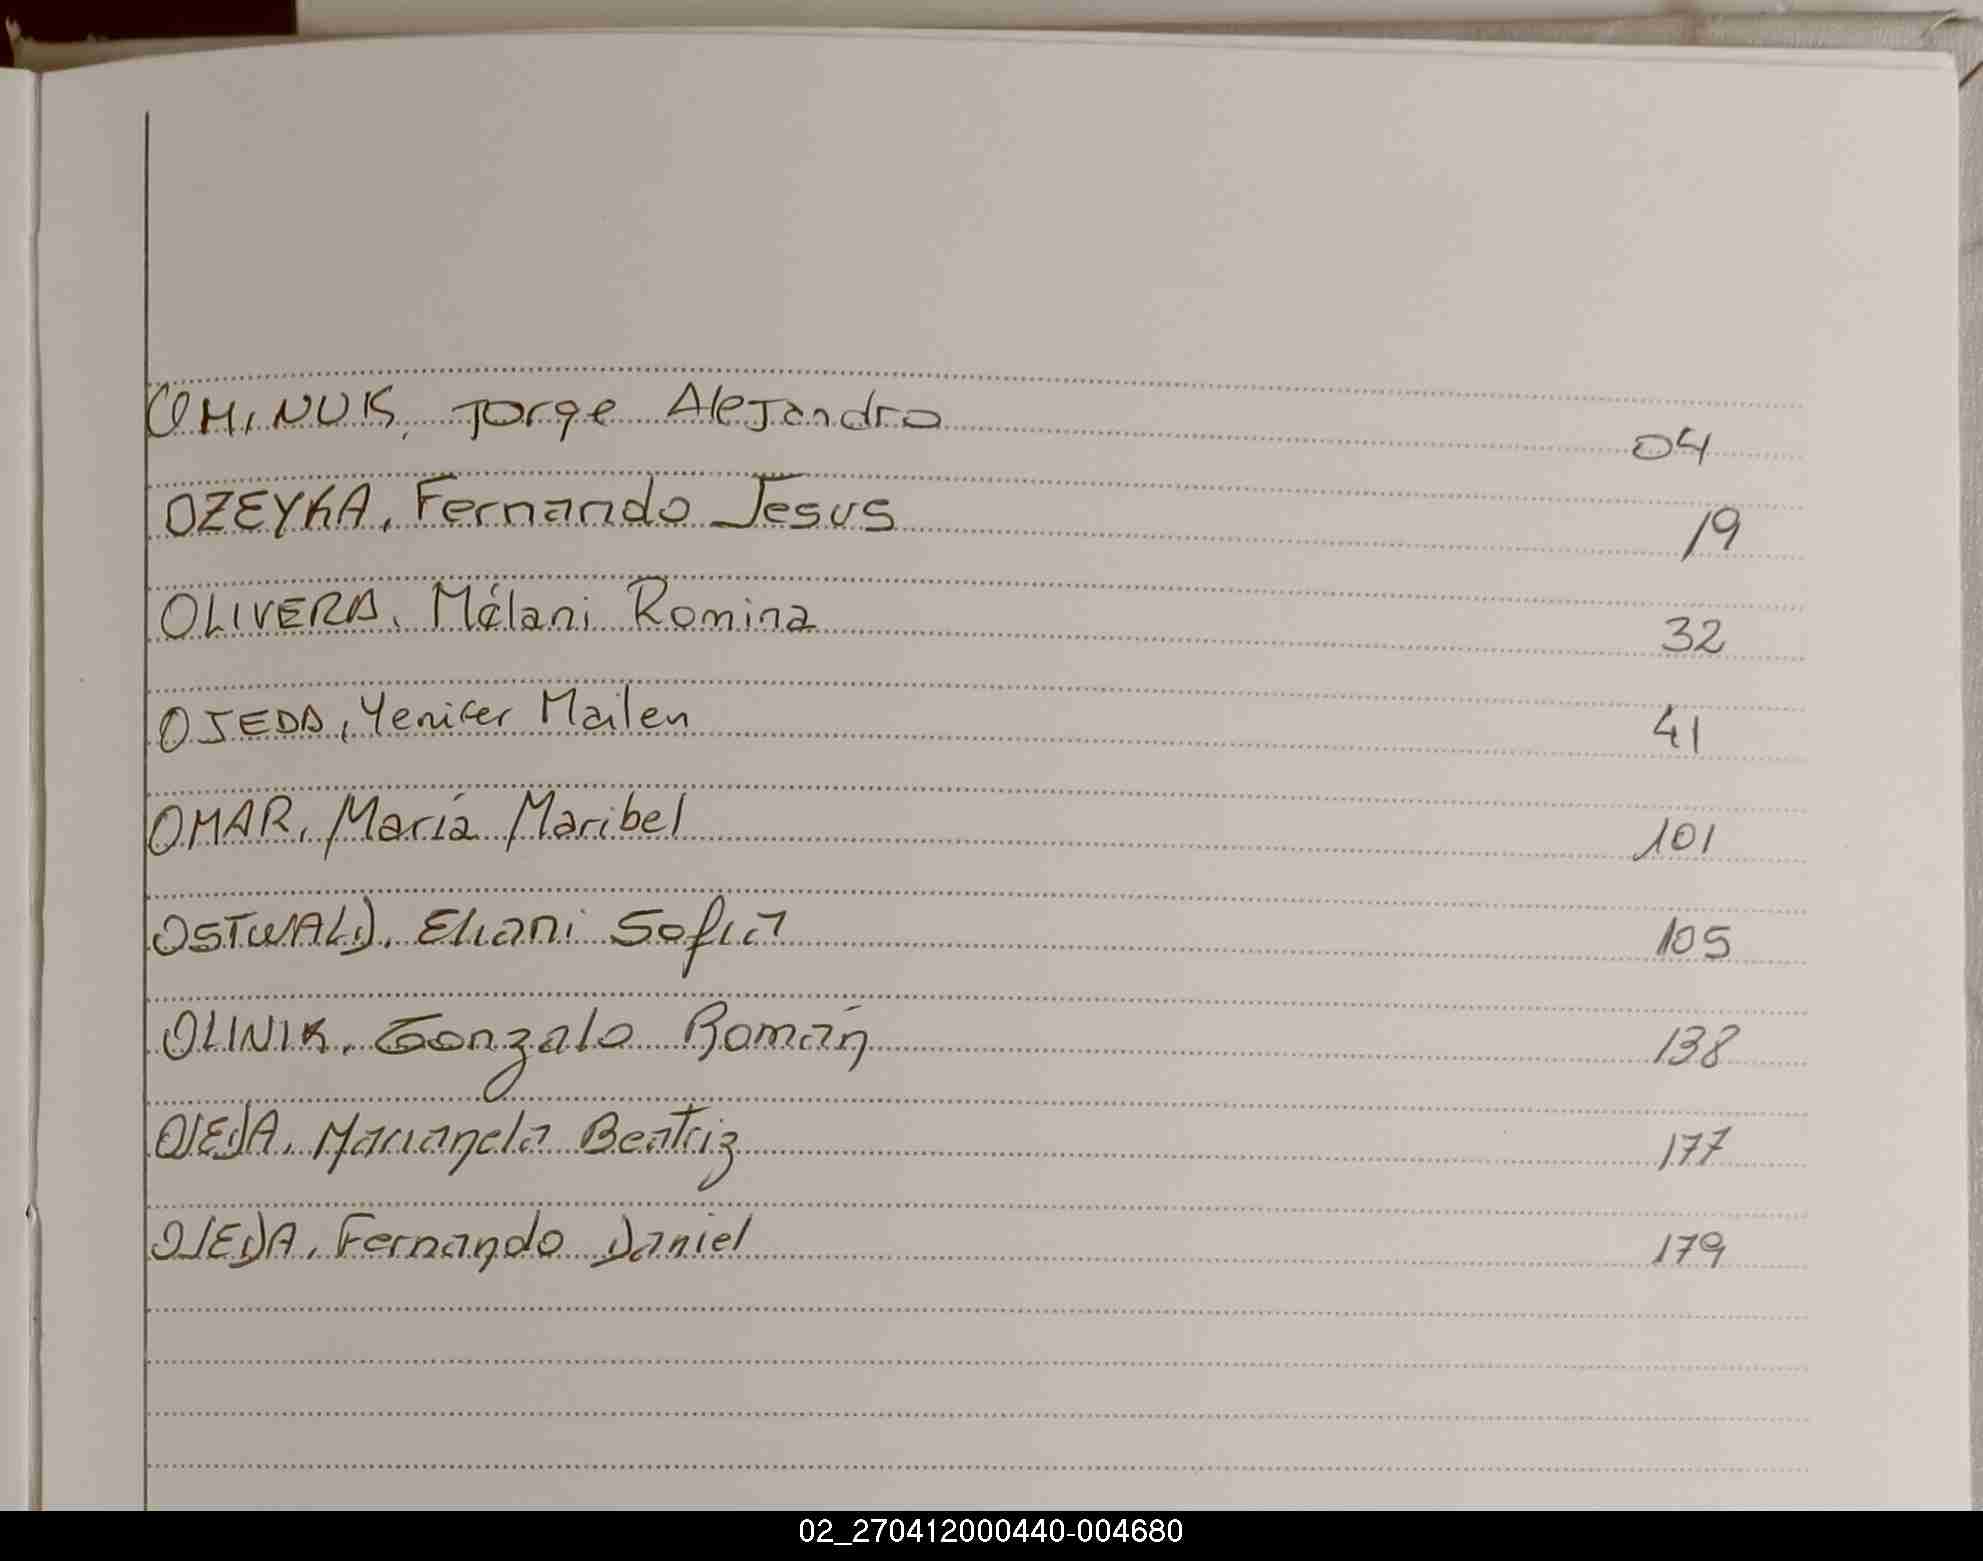 OMINUK, Jorge Alejandro 04
OZEYKA, Fernando Jesus 19
OLIVERA, Mélani Romina 32
OJEDA, Yenifer Mailen 41
OMAR, María Maribel 101
OSTWALD, Eliani Sofía 105
OLINIK, Gonzalo Román 138
OJEDA, Marianela Beatriz 177
OJEDA, Fernando Daniel 179
02_270412000440-004680